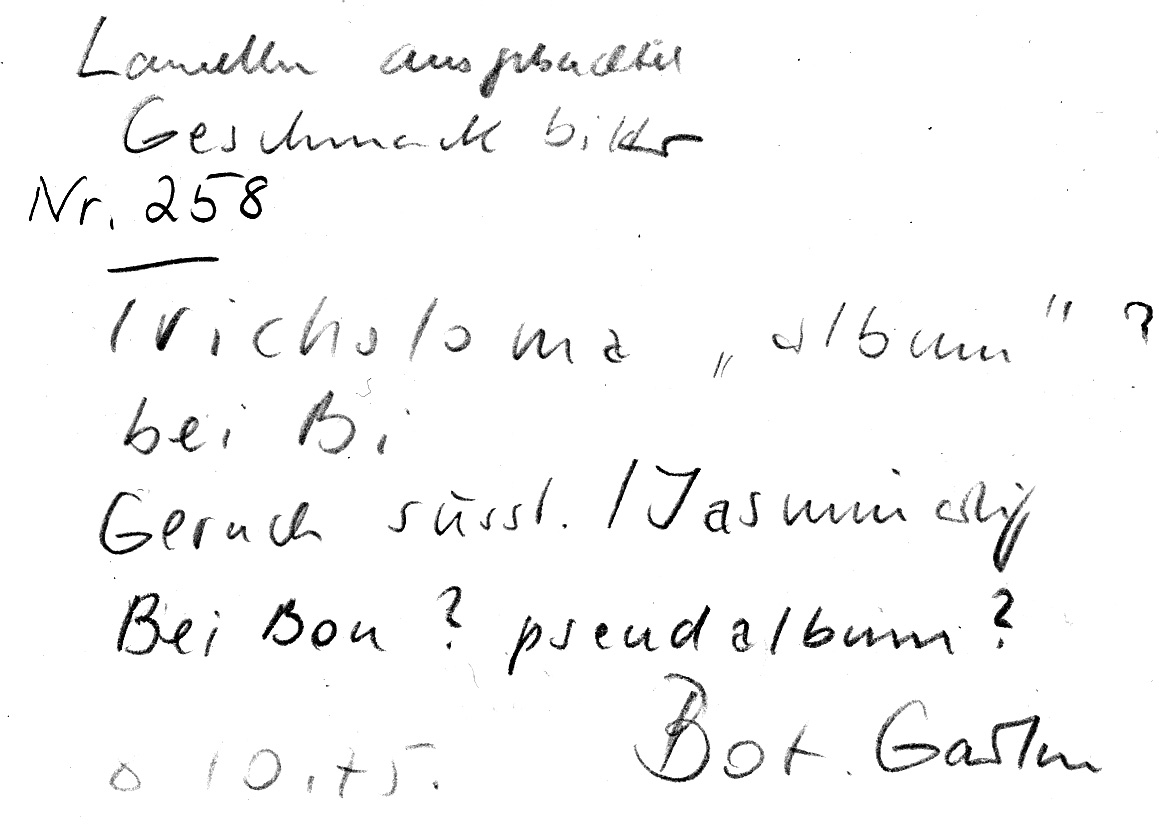 Lamellen ausgebuchtet
Geschmack bitter
Nr. 258
Tricholoma „album" ?
bei Bi
Geruch süssl. / Jasminartig
Bei Bon ? pseudalbum ?
Bot. Garten